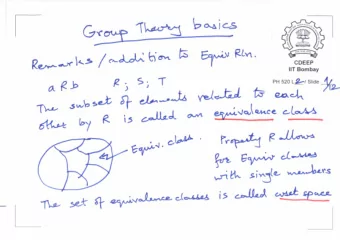 Group Theory basics
CDEEP
IIT Bombay
Remarks/addition to Equiv Rln.
PH 520 L 2 / Slide 1/12
a R b R ; S ; T
The subset of elements related to each
other by R is called an equivalence class
Equiv. class.
Property R allows
for Equiv classes
with single members
The set of equivalence classes is called coset space